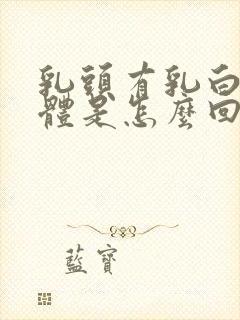 乳頭有乳白
體是怎麼回
藍寶